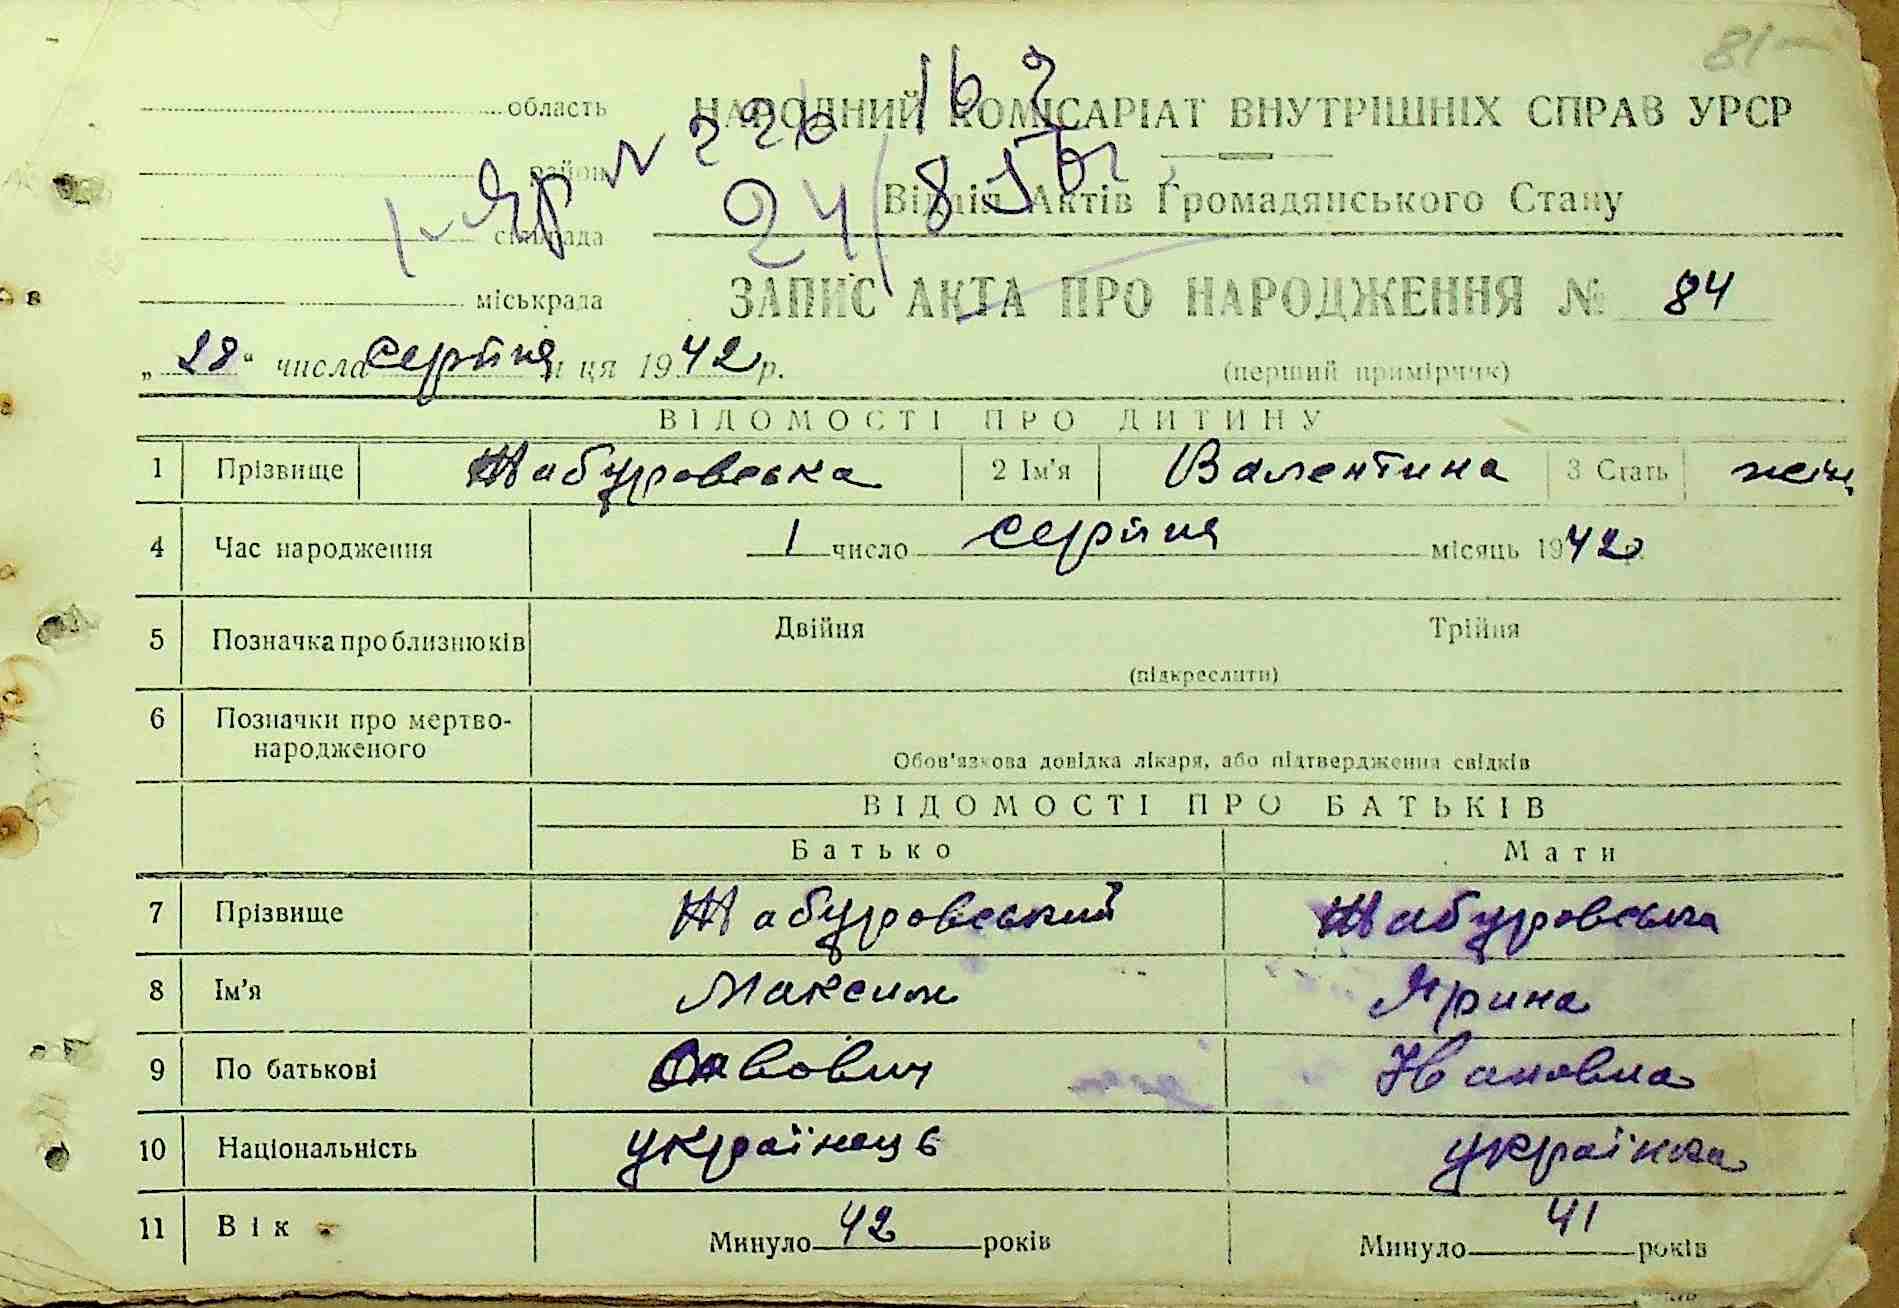 81-
область НАРОДНИЙ КОМІСАРІАТ ВНУТРІШНІХ СПРАВ УРСР
район
Відділ Актів Громадянського Стану
сільрада
24/8
міськрада ЗАПИС АКТА ПРО НАРОДЖЕННЯ № 84
„28“ числа серпня м ця 1942 р. (перший примірник)
ВІДОМОСТІ ПРО ДИТИНУ
1 Прізвище Жабуровська 2 Ім'я Валентина 3 Стать жін
4 Час народження 1 число серпня місяць 1942 р.
5 Позначка про близнюків Двійня Трійня
(підкреслити)
6 Позначки про мертво-
народженого
Обов'язкова довідка лікаря, або підтвердження свідків
ВІДОМОСТІ ПРО БАТЬКІВ
Батько Мати
7 Прізвище Жабуровський Жабуровська
8 Ім'я Максим Ярина
9 По батькові Савович Івановна
10 Національність українець українка
11 Вік Минуло 42 років Минуло 41 років